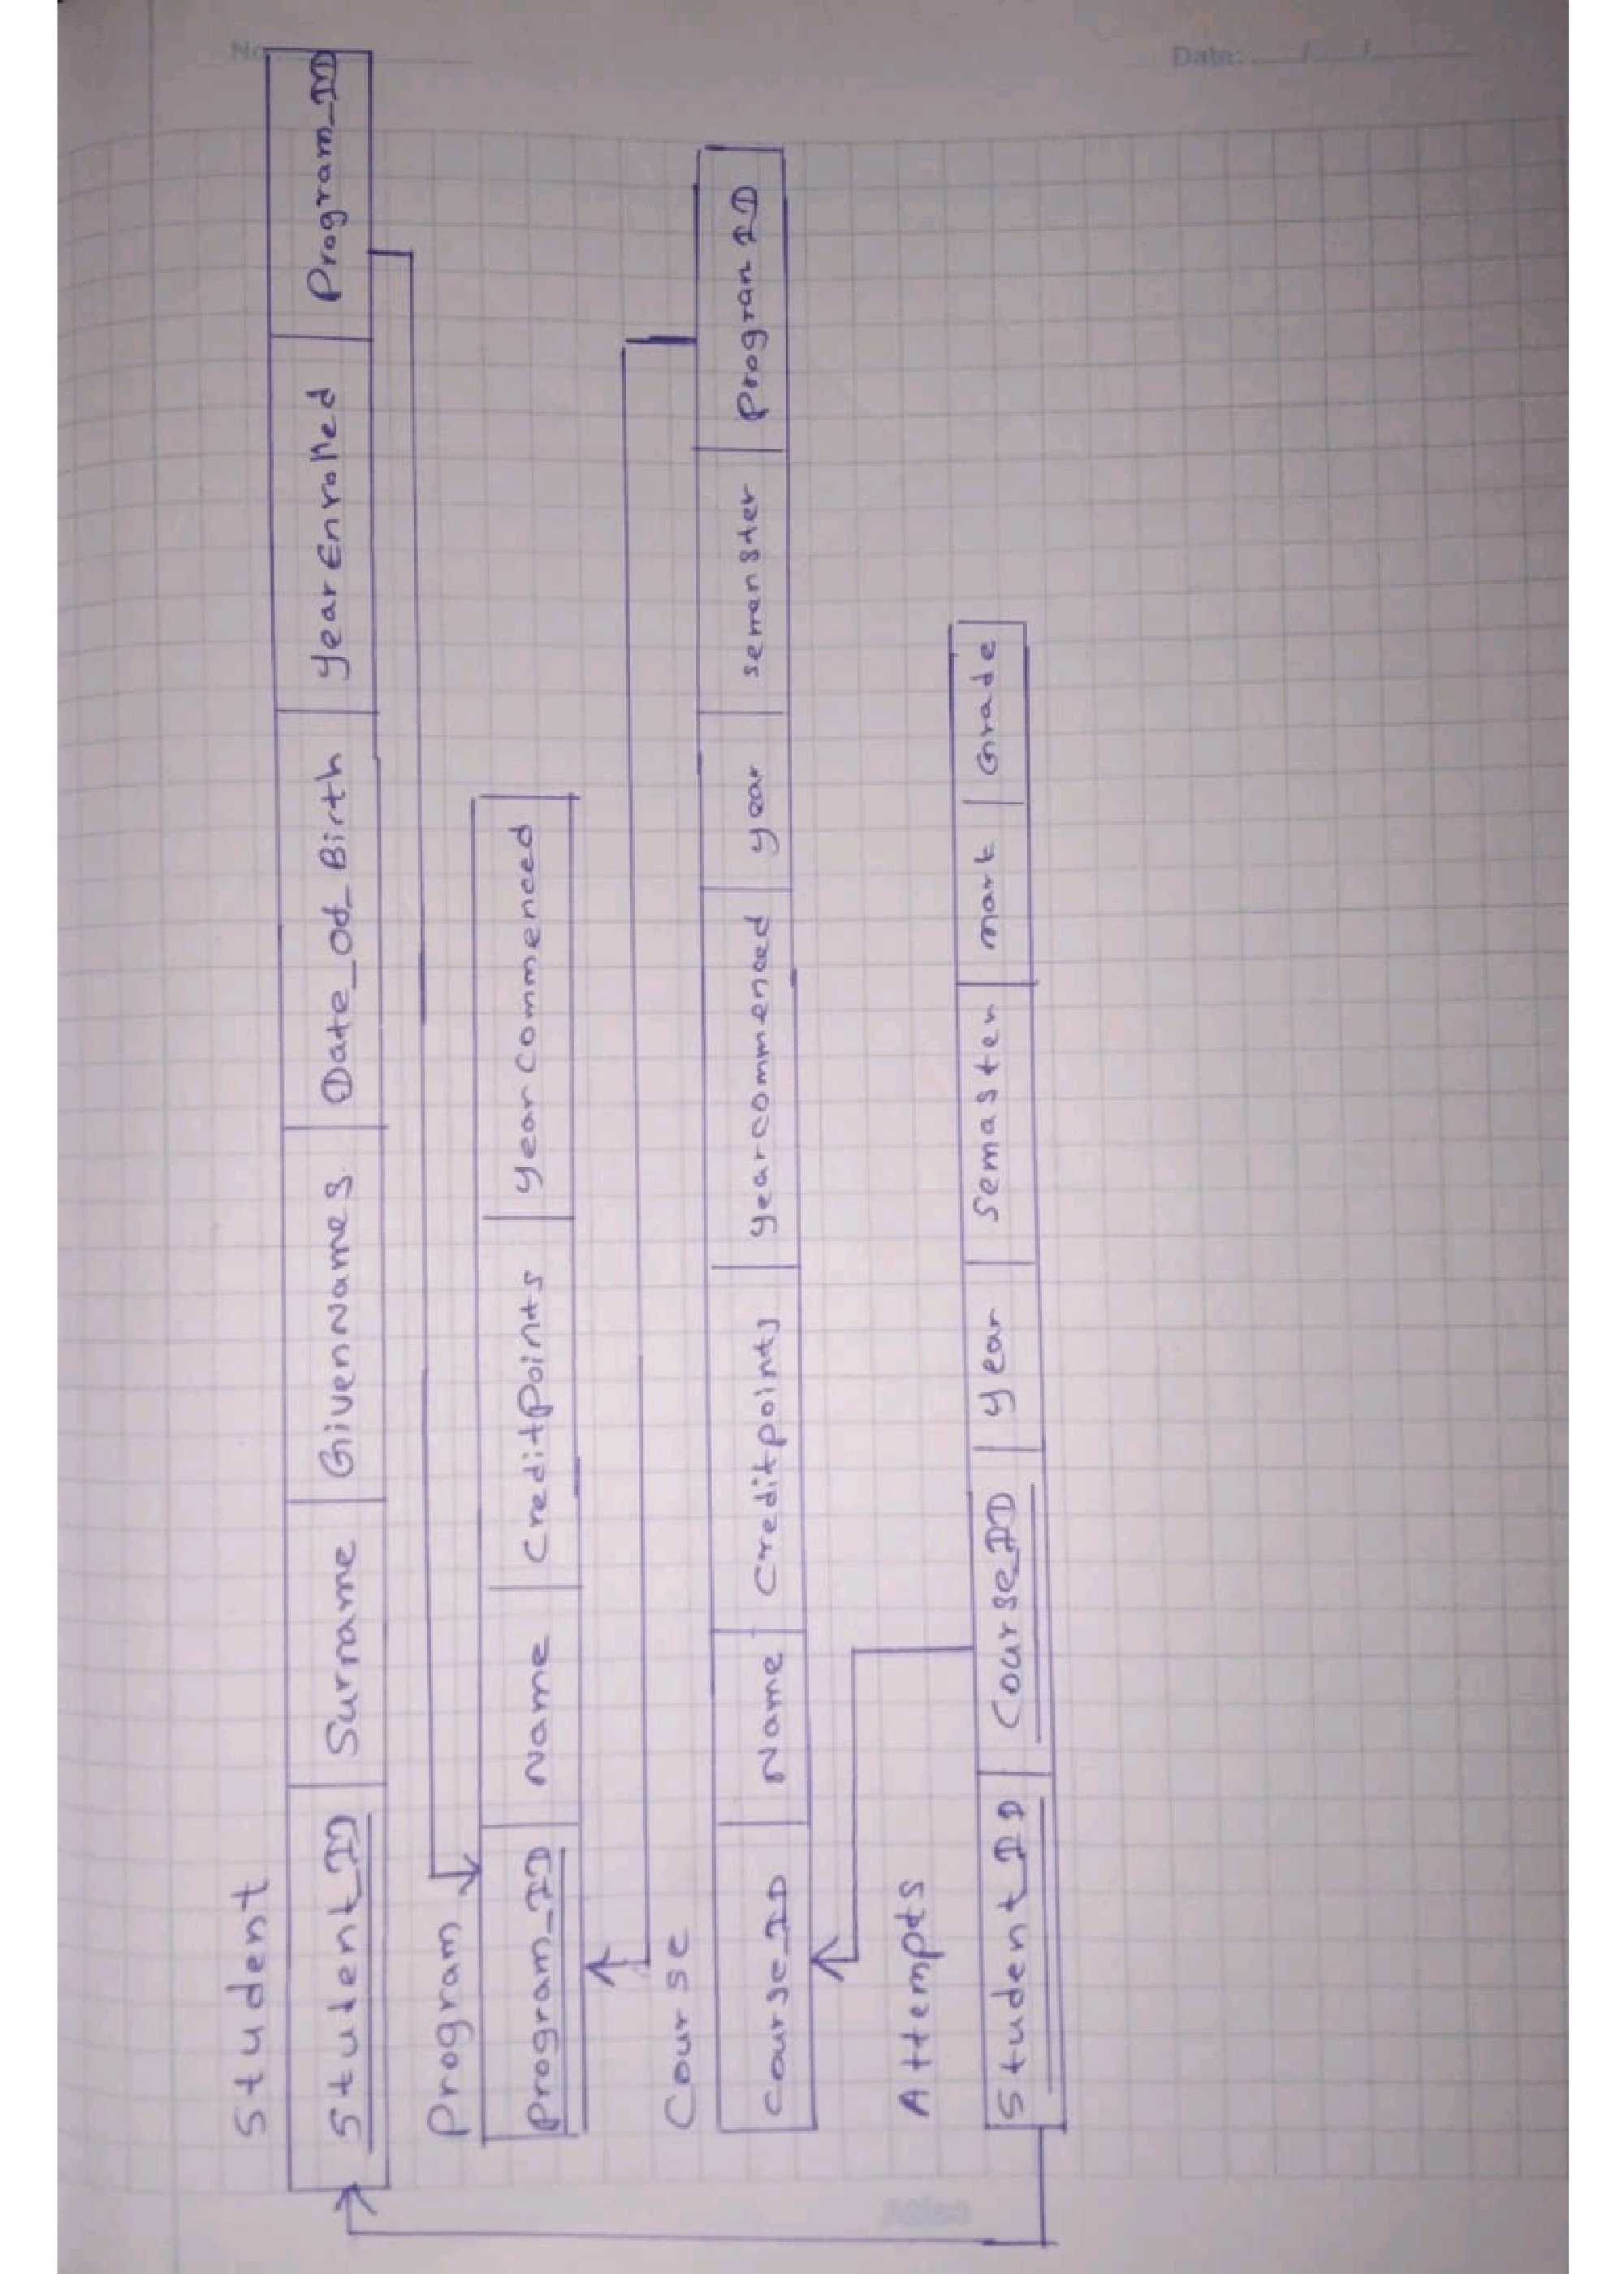 No
Date:
Student
Student_ID Surname GivenNames Date_Of_Birth YearEnrolled Program_ID
Program
Program_ID Name CreditPoints YearCommenced
Course
Course_ID Name Creditpoints yearcommenced year semenster Progran ID
Attempts
Student_ID Course_ID year Semaster mark Grade